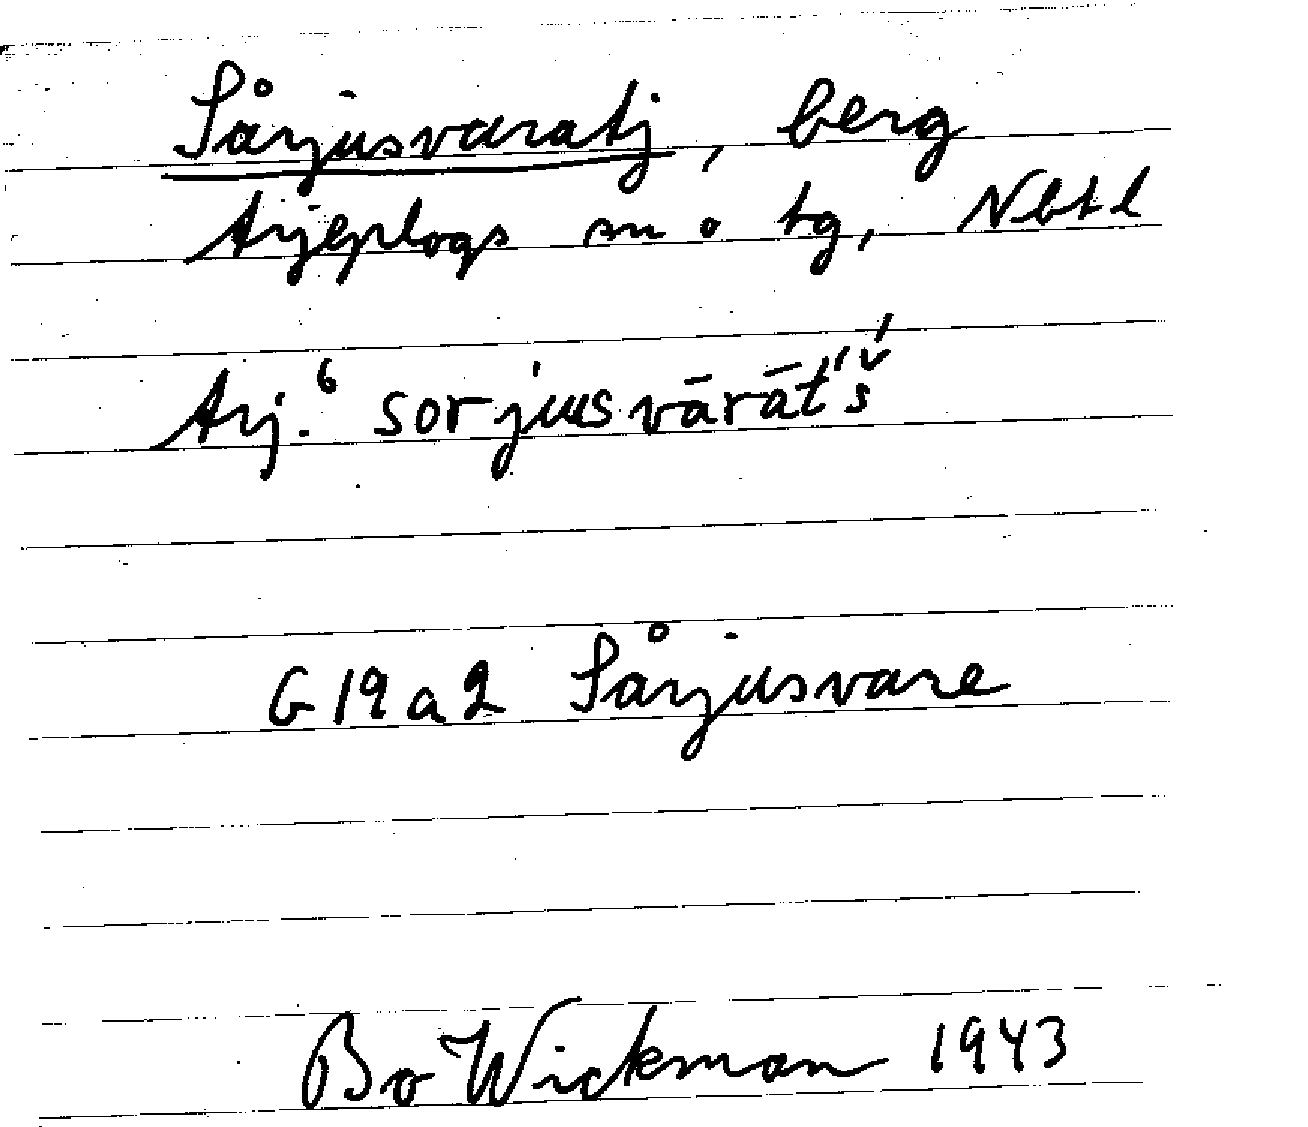 Sårjusvaratj, berg
Arjeplogs sn o tg, Nbtl
Arj.⁶ sorjusvārāt́š́
G19a2 Sårjusvare
Bo Wickman 1943